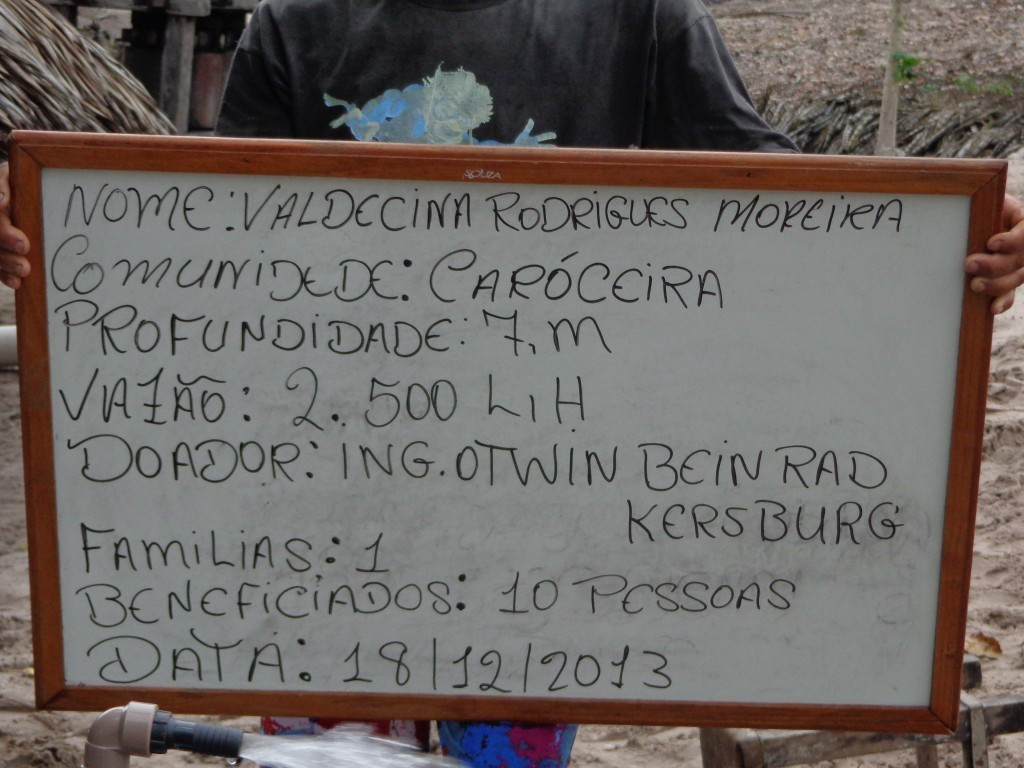 SOUZA
NOME: VALDECINA RODRIGUES MOREIRA
COMUNIDEDE: CARÓCEIRA
PROFUNDIDADE: 7, M
VAZÃO: 2. 500 L, H
DOADOR: ING. OTWIN BEIN RAD
KERSBURG
FAMILIAS: 1
BENEFICIADOS: 10 PESSOAS
DATA: 18/12/2013